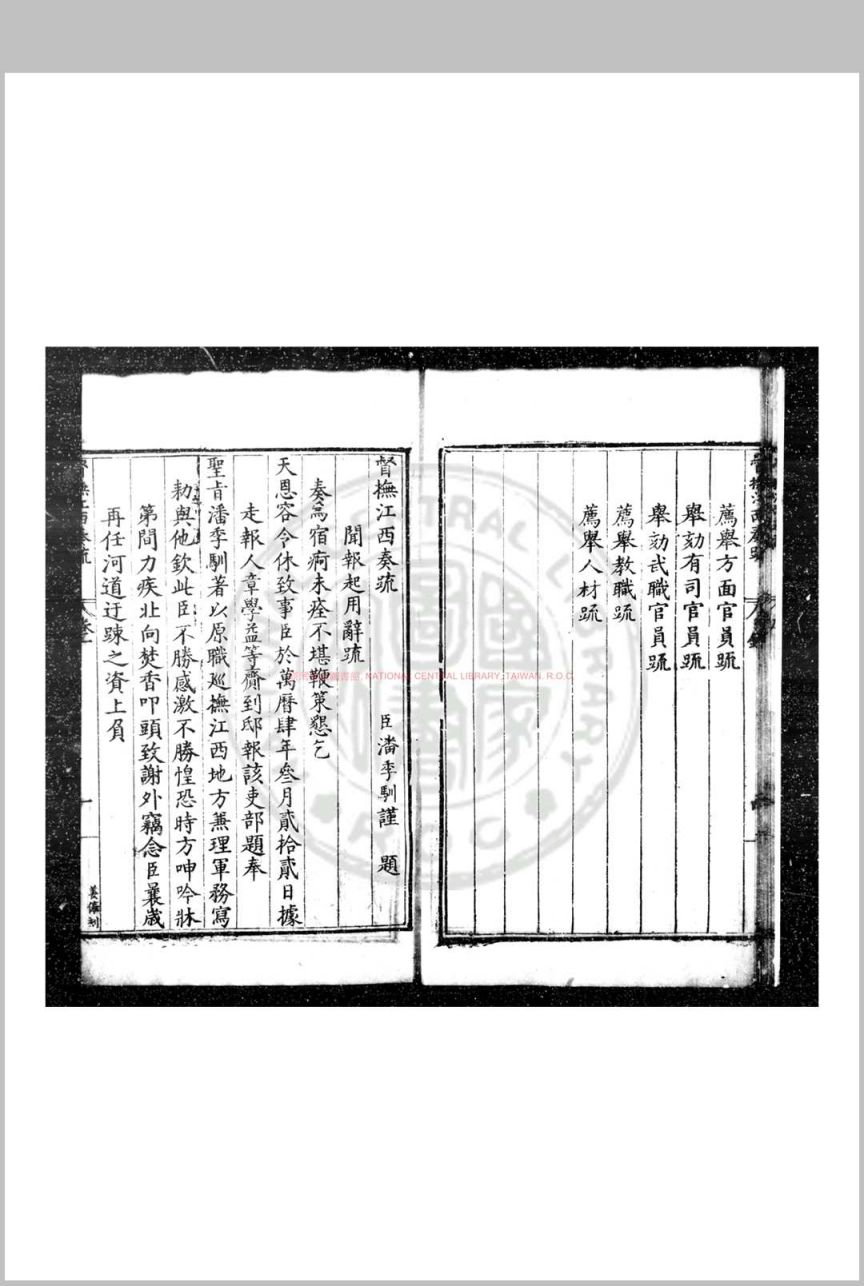 薦舉方面官員䟽
舉劾有司官員䟽
舉劾武職官員䟽
薦舉教職䟽
薦舉人材䟽
督撫江西奏疏 臣潘季馴謹 題
聞報起用辭疏
奏為宿痾未痊不堪鞭策懇乞
天恩容令休致事臣於萬曆肆年叁月貳拾貳日據
走報人章學益等齎到邸報該吏部題奉
聖旨潘季馴著以原職廵撫江西地方兼理軍務寫
勑與他欽此臣不勝感激不勝惶恐時方呻吟牀
第間力疾北向焚香叩頭致謝外竊念臣曩歲
再任河道迂踈之資上負
督撫江西奏疏 卷一
一
NATIONAL CENTRAL LIBRARY, TAIWAN. R.O.C